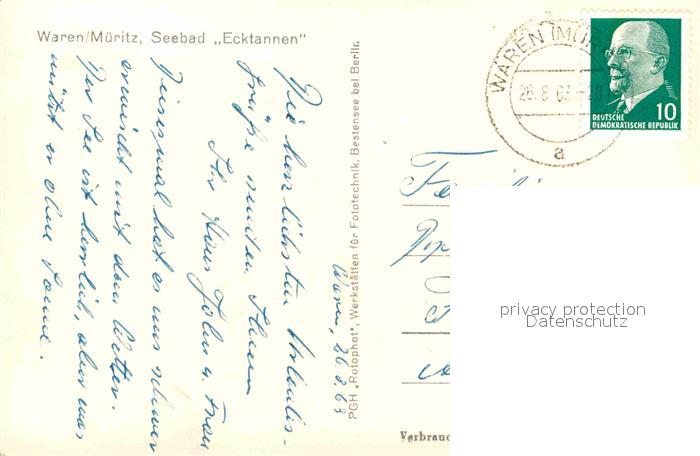 Waren/Müritz, Seebad „Ecktannen"
Waren, 26.8.63
Die herzlichsten Urlaubs-
grüße senden Ihnen
Ihr Hans John u. Frau
Diesesmal hat es uns schwer
erwischt mit dem Wetter.
Der See ist herrlich, aber was
nützt er ohne Sonne.
PGH „Rotophot", Werkstätten für Fototechnik, Bestensee bei Berlin.
WAREN (MÜR
26.8.63
a
10
DEUTSCHE
DEMOKRATISCHE REPUBLIK
Fa
privacy protection
Datenschutz
Verbrauc